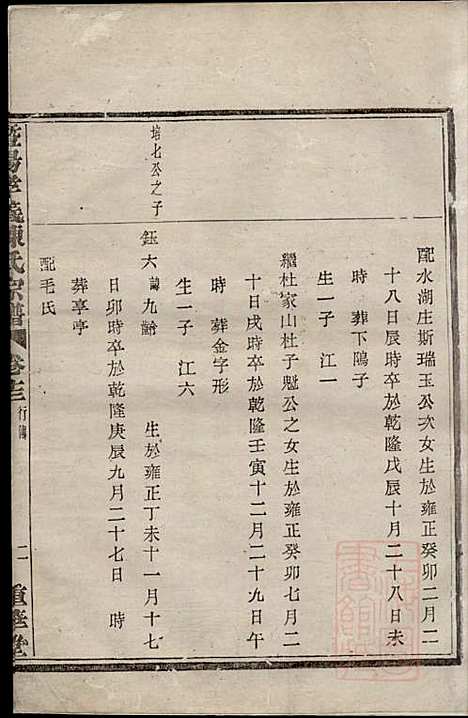 配水湖庄斯瑞玉公次女生於雍正癸卯二月二
十八日辰時卒於乾隆戊辰十月二十八日未
時　葬下隖子
生一子　江一
繼杜家山杜子魁公之女生於雍正癸卯七月二
十日戌時卒於乾隆壬寅十二月二十九日午
時　葬金字形
生一子　江六
培七公之子
鈺六　諱九齡　生於雍正丁未十一月十七
日卯時卒於乾隆庚辰九月二十七日　時
葬享亭
配毛氏
暨陽孝義陳氏宗譜　卷之三　行傳　二　重華堂